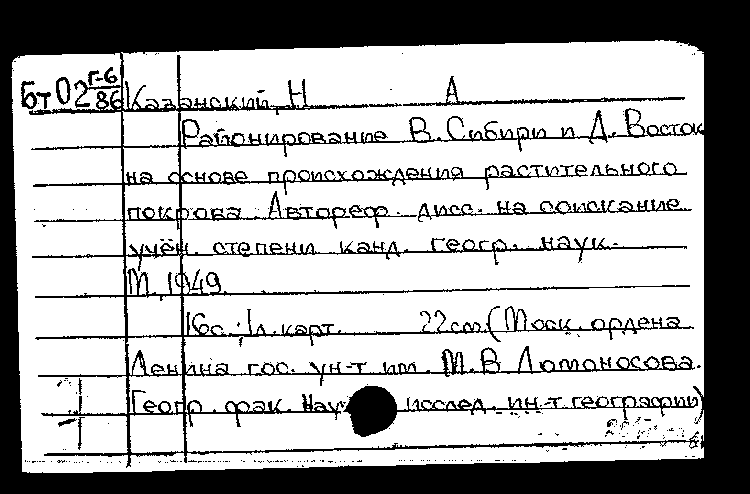 Бт02 Г-6/86 Казанский, Н А
Районирование В. Сибири и Д. Восток
на основе происхождения растительного
покрова. Автореф. дисс. на соискание
учён. степени канд. геогр. наук.
М., 1949.
16с.; 1л. карт. 22см. (Моск. ордена
Ленина гос. ун-т им. М.В. Ломоносова.
Геогр. фак. Науч исслед. ин-т географии)